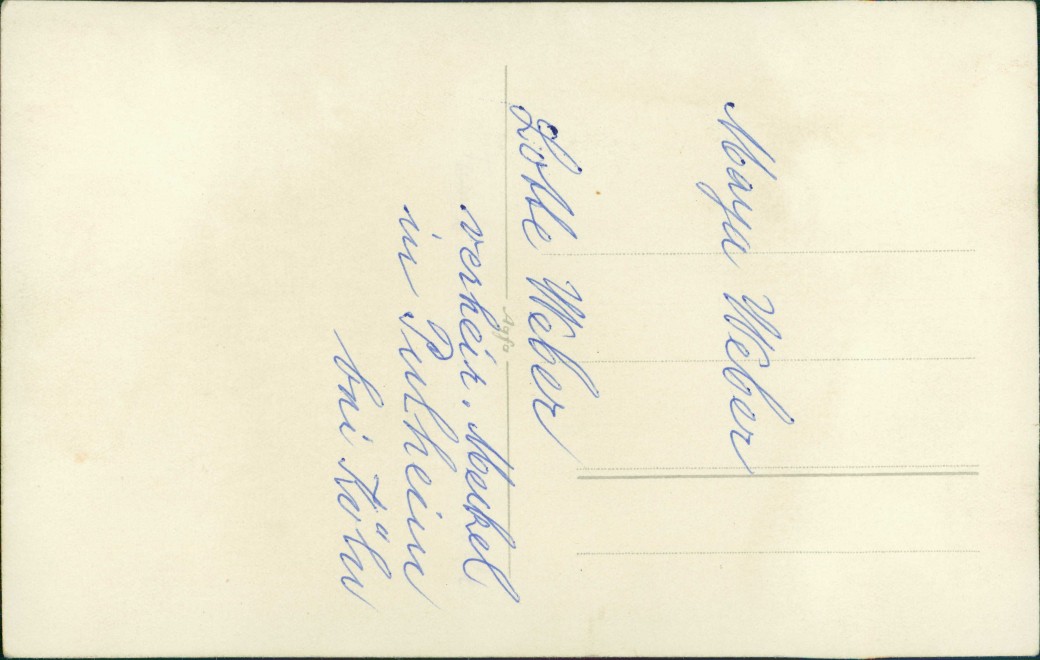 Maya Weber
Lotte Weber
verheir. Merkel
in Pulheim
bei Köln
Agfa